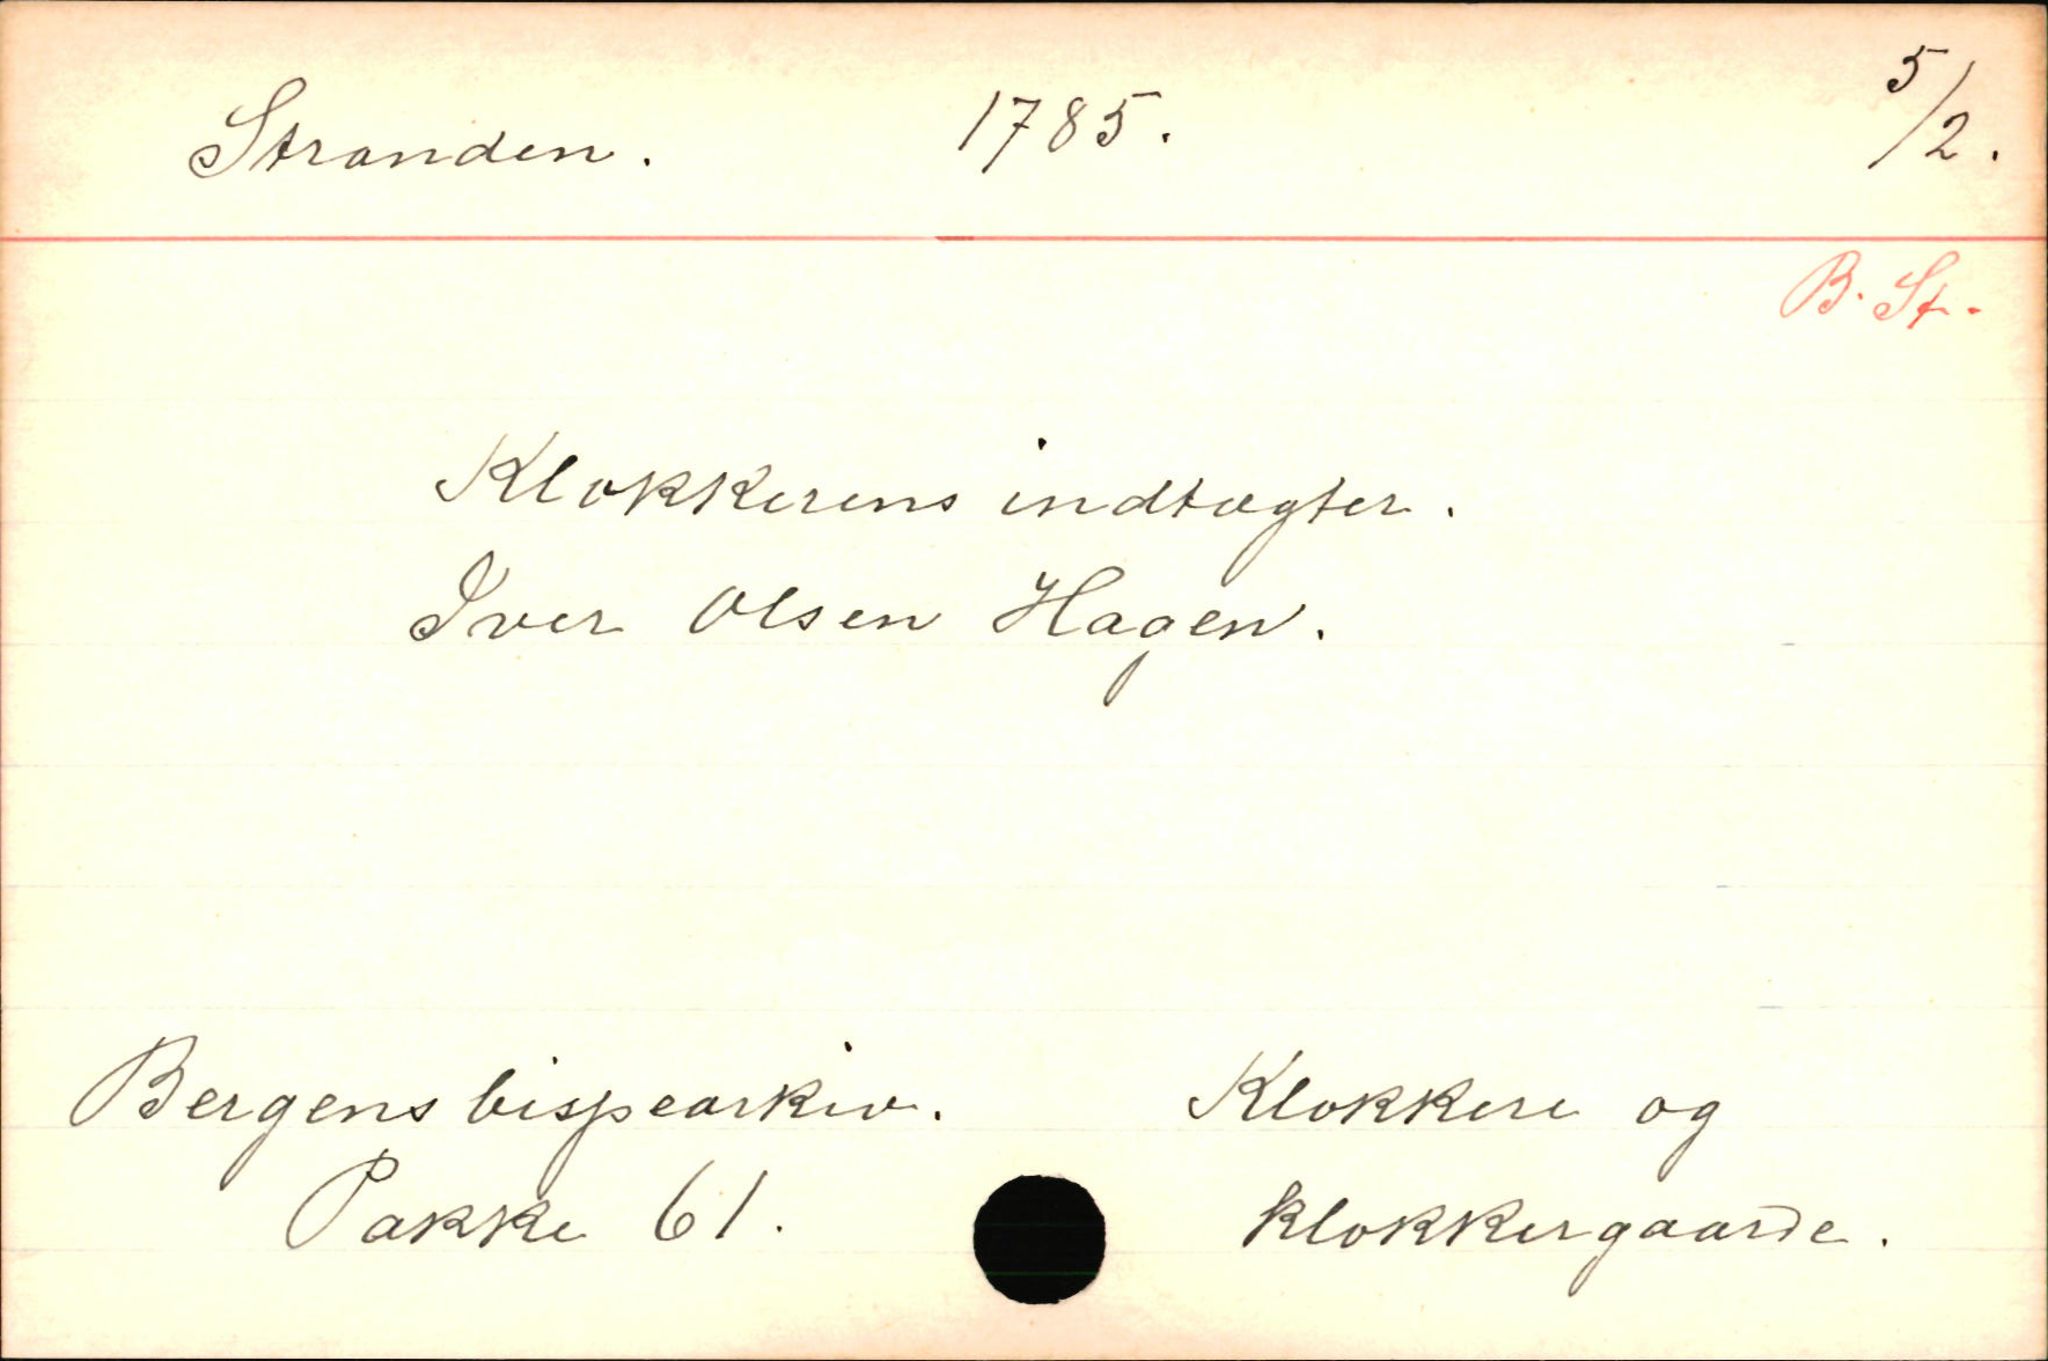 Stranden. 1785. 5/2.
B. St.
Klokkerens indtægter.
Iver Olsen Hagen.
Bergens bispearkiv. Klokkere og
Pakke 61. klokkergaarde.